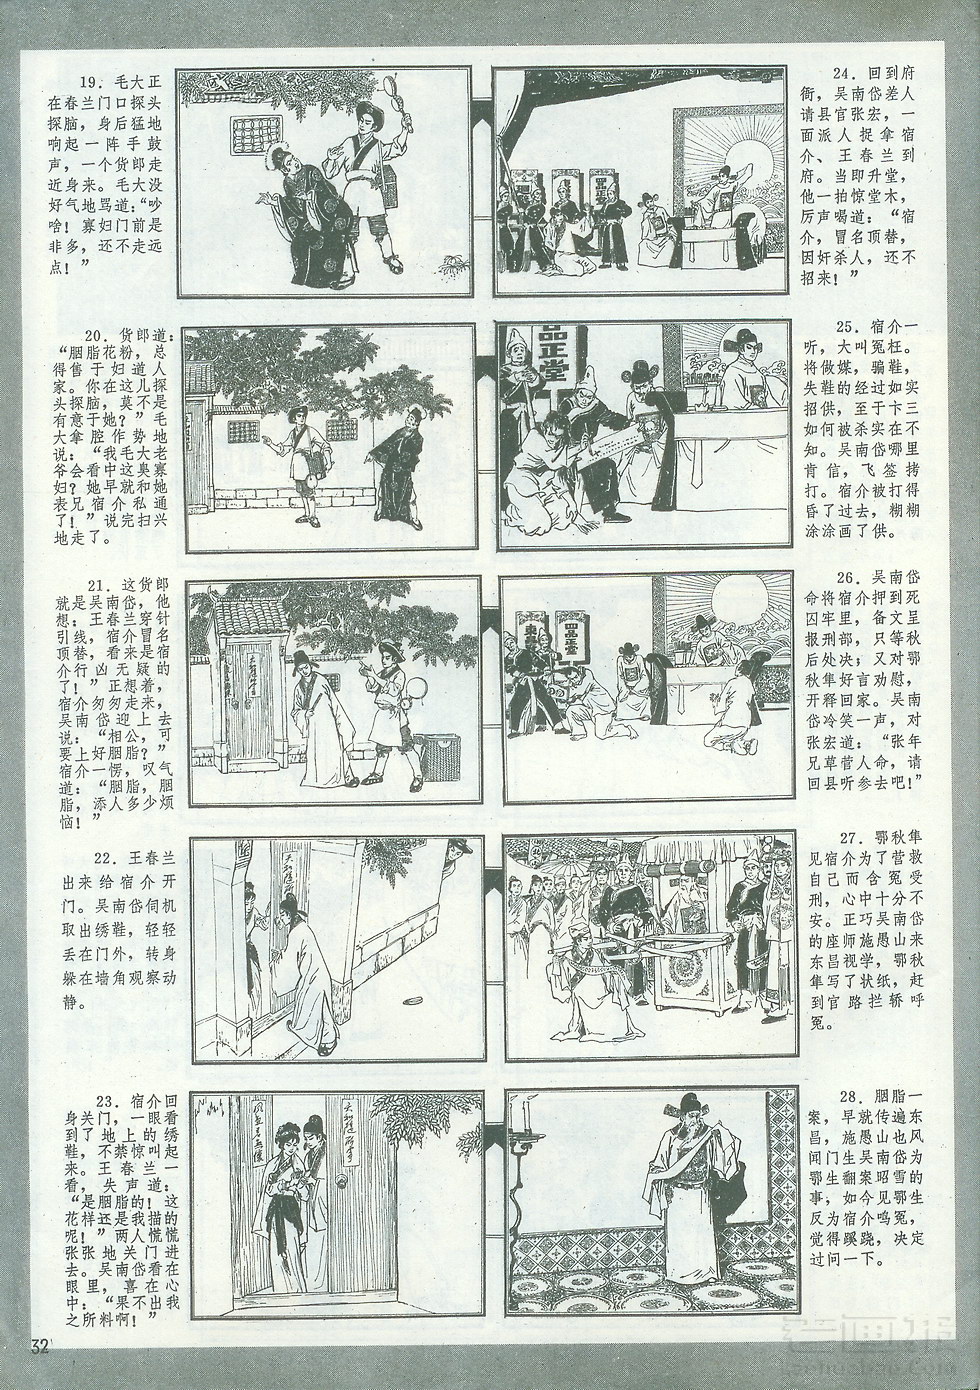 19. 毛大正
在春兰门口探头
探脑，身后猛地
响起一阵手鼓
声，一个货郎走
近身来。毛大没
好气地骂道：“吵
啥！寡妇门前是
非多，还不走远
点！”
20. 货郎道：
“胭脂花粉，总
得售于妇道人
家。你在这儿探
头探脑，莫不是
有意于她？”毛
大拿腔作势地
说：“我毛大老
爷会看中这臭寡
妇？她早就和她
表兄宿介私通
了！”说完扫兴
地走了。
21. 这货郎
就是吴南岱，他
想：王春兰穿针
引线，宿介冒名
顶替，看来是宿
介行凶无疑的
了！”正想着，
宿介匆匆走来，
吴南岱迎上去
说：“相公，可
要上好胭脂？”
宿介一愣，叹气
道：“胭脂，胭
脂，添人多少烦
恼！”
22. 王春兰
出来给宿介开
门。吴南岱伺机
取出绣鞋，轻轻
丢在门外，转身
躲在墙角观察动
静。
23. 宿介回
身关门，一眼看
到了地上的绣
鞋，不禁惊叫起
来。王春兰一
看，失声道：
“是胭脂的！这
花样还是我描的
呢！”两人慌慌
张张地关门进
去。吴南岱看在
眼里，喜在心
中：“果不出我
之所料啊！”
24. 回到府
衙，吴南岱差人
请县官张宏，一
面派人捉拿宿
介、王春兰到
府。当即升堂，
他一拍惊堂木，
厉声喝道：“宿
介，冒名顶替，
因奸杀人，还不
招来！”
25. 宿介一
听，大叫冤枉。
将做媒，骗鞋，
失鞋的经过如实
招供，至于卞三
如何被杀实在不
知。吴南岱哪里
肯信，飞签拷
打。宿介被打得
昏了过去，糊糊
涂涂画了供。
26. 吴南岱
命将宿介押到死
囚牢里，备文呈
报刑部，只等秋
后处决；又对鄂
秋隼好言劝慰，
开释回家。吴南
岱冷笑一声，对
张宏道：“张年
兄草菅人命，请
回县听参去吧！”
27. 鄂秋隼
见宿介为了营救
自己而含冤受
刑，心中十分不
安。正巧吴南岱
的座师施愚山来
东昌视学，鄂秋
隼写了状纸，赶
到官路拦轿呼
冤。
28. 胭脂一
案，早就传遍东
昌，施愚山也风
闻门生吴南岱为
鄂生翻案昭雪的
事，如今见鄂生
反为宿介鸣冤，
觉得蹊跷，决定
过问一下。
品正堂
四品正堂
32